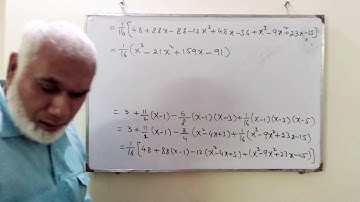 = 1/16 [48+88x-88-12x²+48x-36+x³-9x²+23x-15]
= 1/16 (x³-21x²+159x-91)
= 3 + 11/2 (x-1) - 6/8 (x-1)(x-3) + 1/16 (x-1)(x-3)(x-5)
= 3 + 11/2 (x-1) - 3/4 (x²-4x+3) + 1/16 (x³-9x²+23x-15)
= 1/16 [48+88(x-1)-12(x²-4x+3)+(x³-9x²+23x-15)]